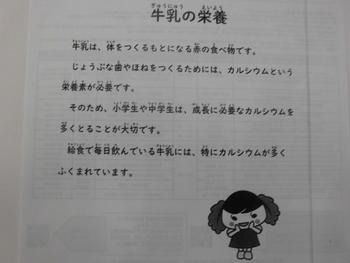 牛乳の栄養
牛乳は、体をつくるもとになる赤の食べ物です。
じょうぶな歯やほねをつくるためには、カルシウムという
栄養素が必要です。
そのため、小学生や中学生は、成長に必要なカルシウムを
多くとることが大切です。
給食で毎日飲んでいる牛乳には、特にカルシウムが多く
ふくまれています。